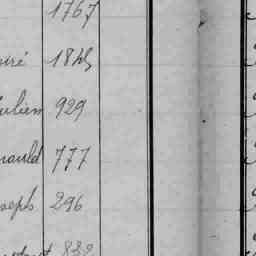 1767
iré 1845
ulien 929
nauld 777
seph 296
832